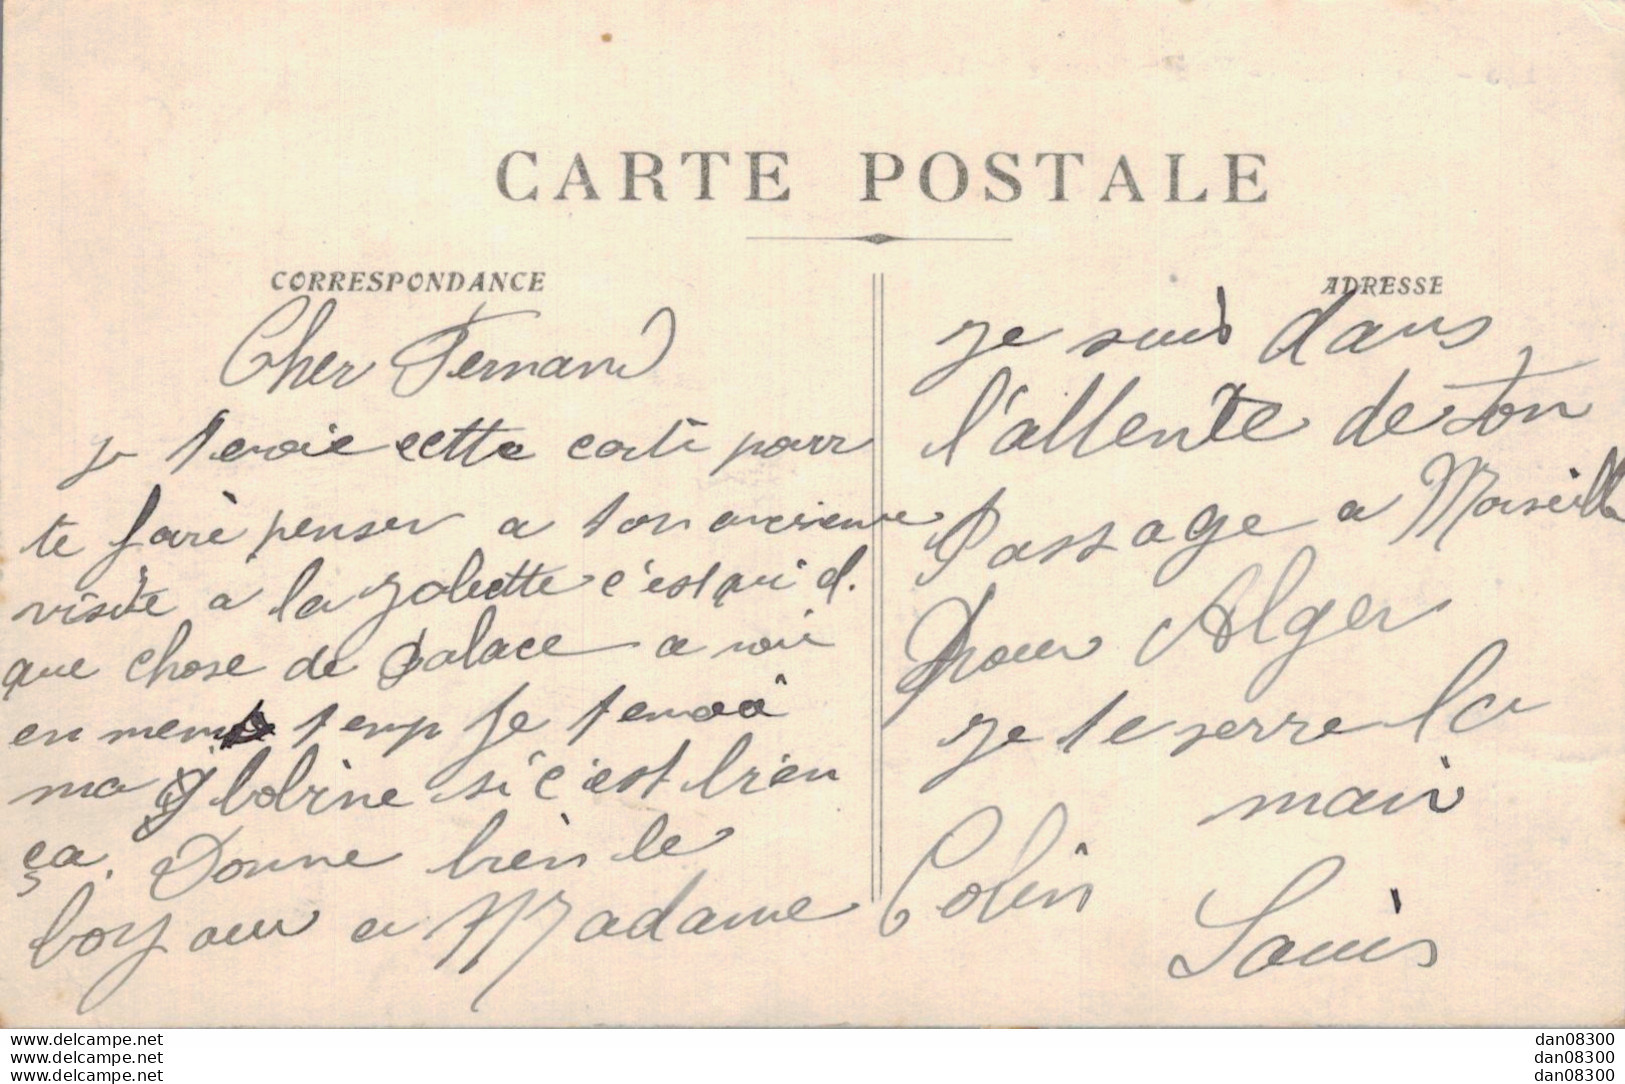 CARTE POSTALE
CORRESPONDANCE
Cher Fernand
je tenvoie cette carte pour
te faire penser a ton ancienne
visite a la Joliette c'est qui d.
que chose de Palace a voir
en meme temp je tenvoi
ma si c'est bien
ça. Donne bien le
bonjour a Madame Colin
ADRESSE
je suis dans
l'attente de ton
Passage a Marseille
Pour Alger
je te serre la
main
Louis
www.delcampe.net
www.delcampe.net
www.delcampe.net
dan08300
dan08300
dan08300